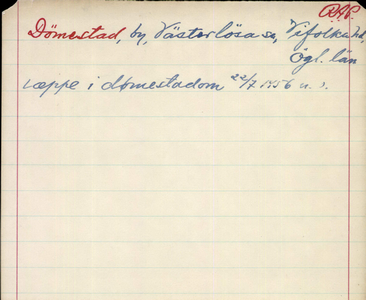 RAP
Dömestad, by, Västerlösa sn, Vifolka hd,
Ögl. län
læppe i dømestadom 22/7 1356 n. s.